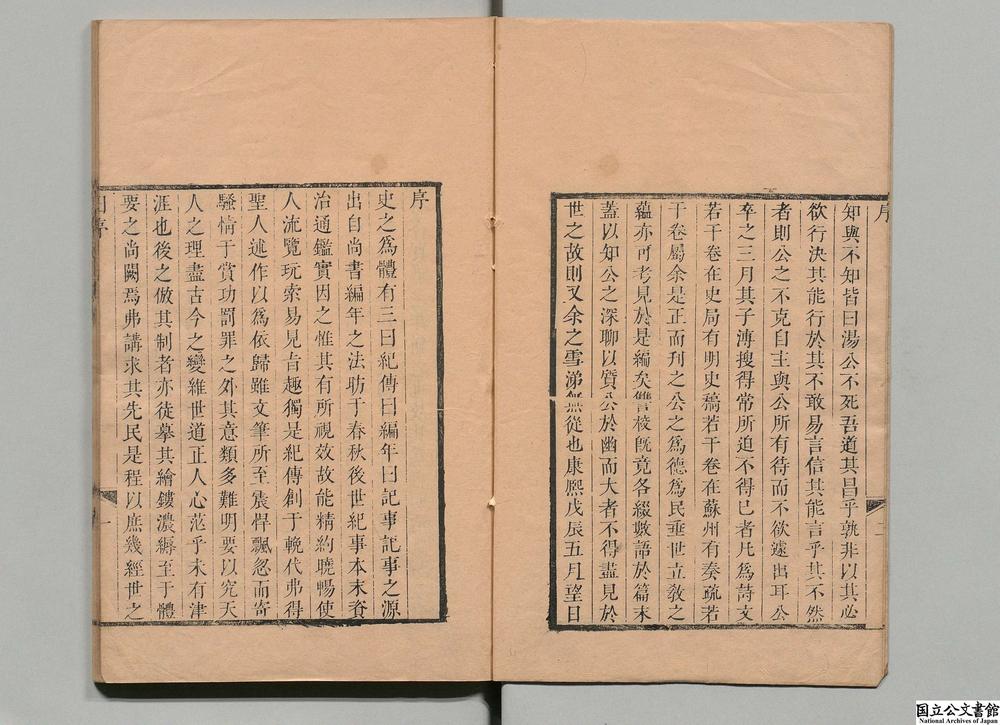 序
知與不知皆曰湯公不死吾道其昌乎孰非以其必
欲行決其能行於其不敢易言信其能言乎其不然
者則公之不克自主與公所有待而不欲遽出耳公
卒之三月其子溥搜得常所迫不得已者凡為詩文
若干卷在史局有明史稿若干卷在蘇州有奏疏若
干卷屬余是正而刊之公之為德為民垂世立教之
蘊亦可考見於是編矣讐校旣竟各綴數語於篇末
蓋以知公之深聊以質公於幽而大者不得盡見於
世之故則又余之雪涕無從也康熙戊辰五月望日
二
序
史之為體有三曰紀傳曰編年曰記事記事之源
出自尚書編年之法昉于春秋後世紀事本末資
治通鑑實因之惟其有所視效故能精約曉暢使
人流覽玩索易見旨趣獨是紀傳創于輓代弗得
聖人述作以為依歸雖文筆所至震悍飄忽而寄
騷情于賞功罰罪之外其意類多難明要以究天
人之理盡古今之變維世道正人心茫乎未有津
涯也後之倣其制者亦徒摹其繪鏤濃縟至于體
要之尚闕焉弗講求其先民是程以庶幾經世之
一
国立公文書館
National Archives of Japan